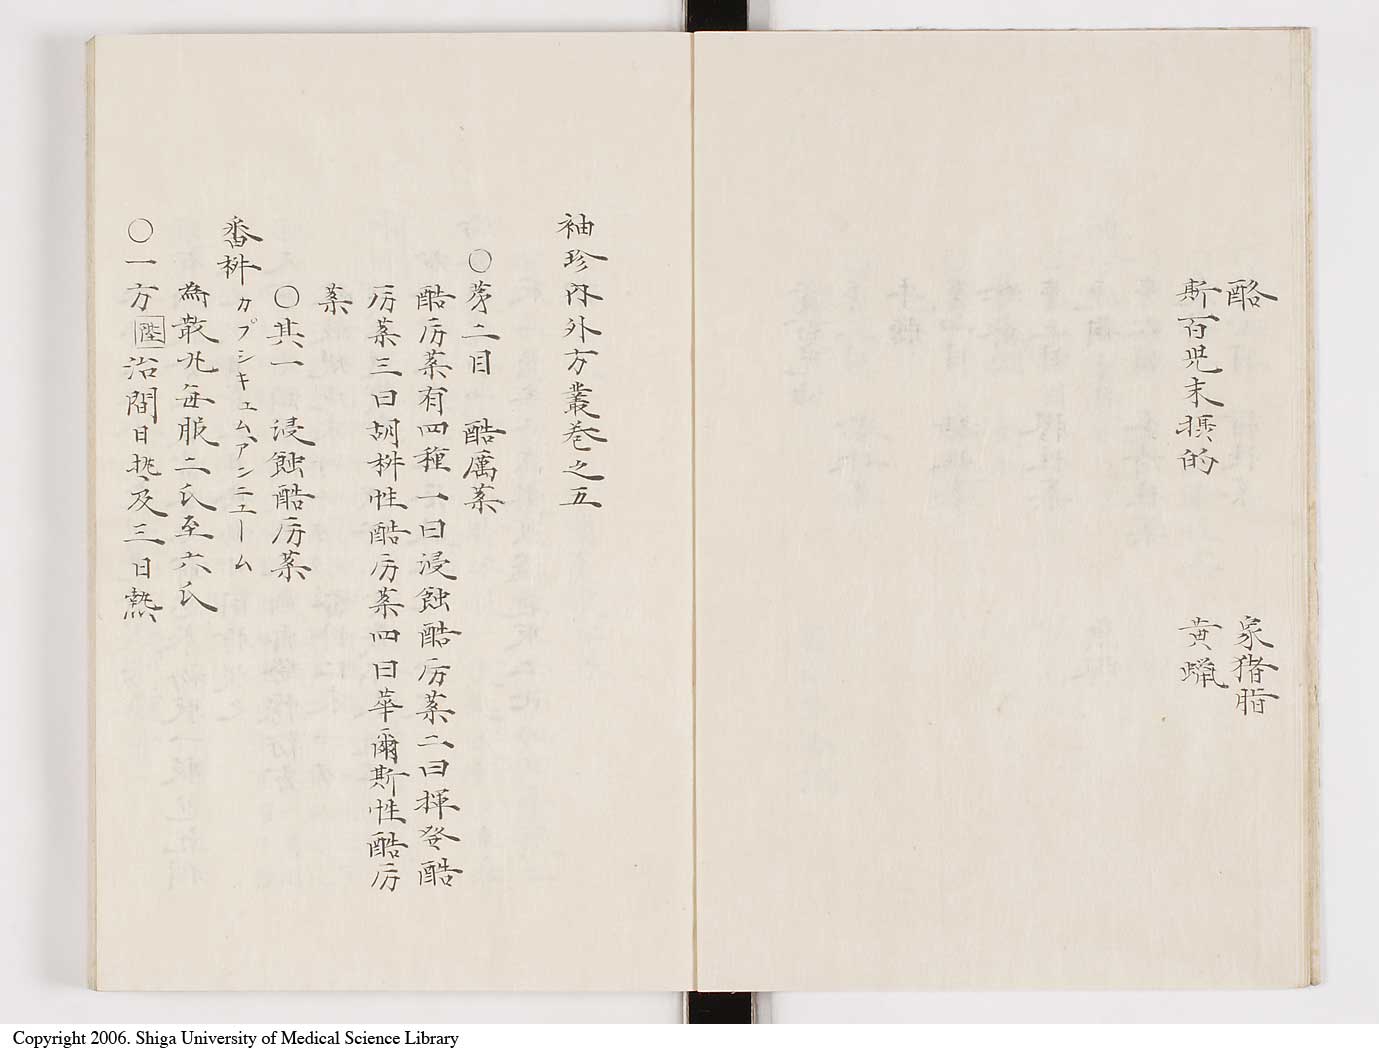 酪　家猪脂
斯百児末摂的　黄蝋
袖珍内外方叢巻之五
〇第二目　酷厲薬
酷厉薬有四種一曰浸蝕酷厉薬二曰揮発酷
厉薬三曰胡椒性酷厉薬四曰華爾斯性酷厉
薬
〇其一　浸蝕酷厉薬
番椒 カプシキュム、アンニユーム
為散丸毎服二氏至六氏
〇一方 陞 治間日挑及三日熱
Copyright 2006. Shiga University of Medical Science Library